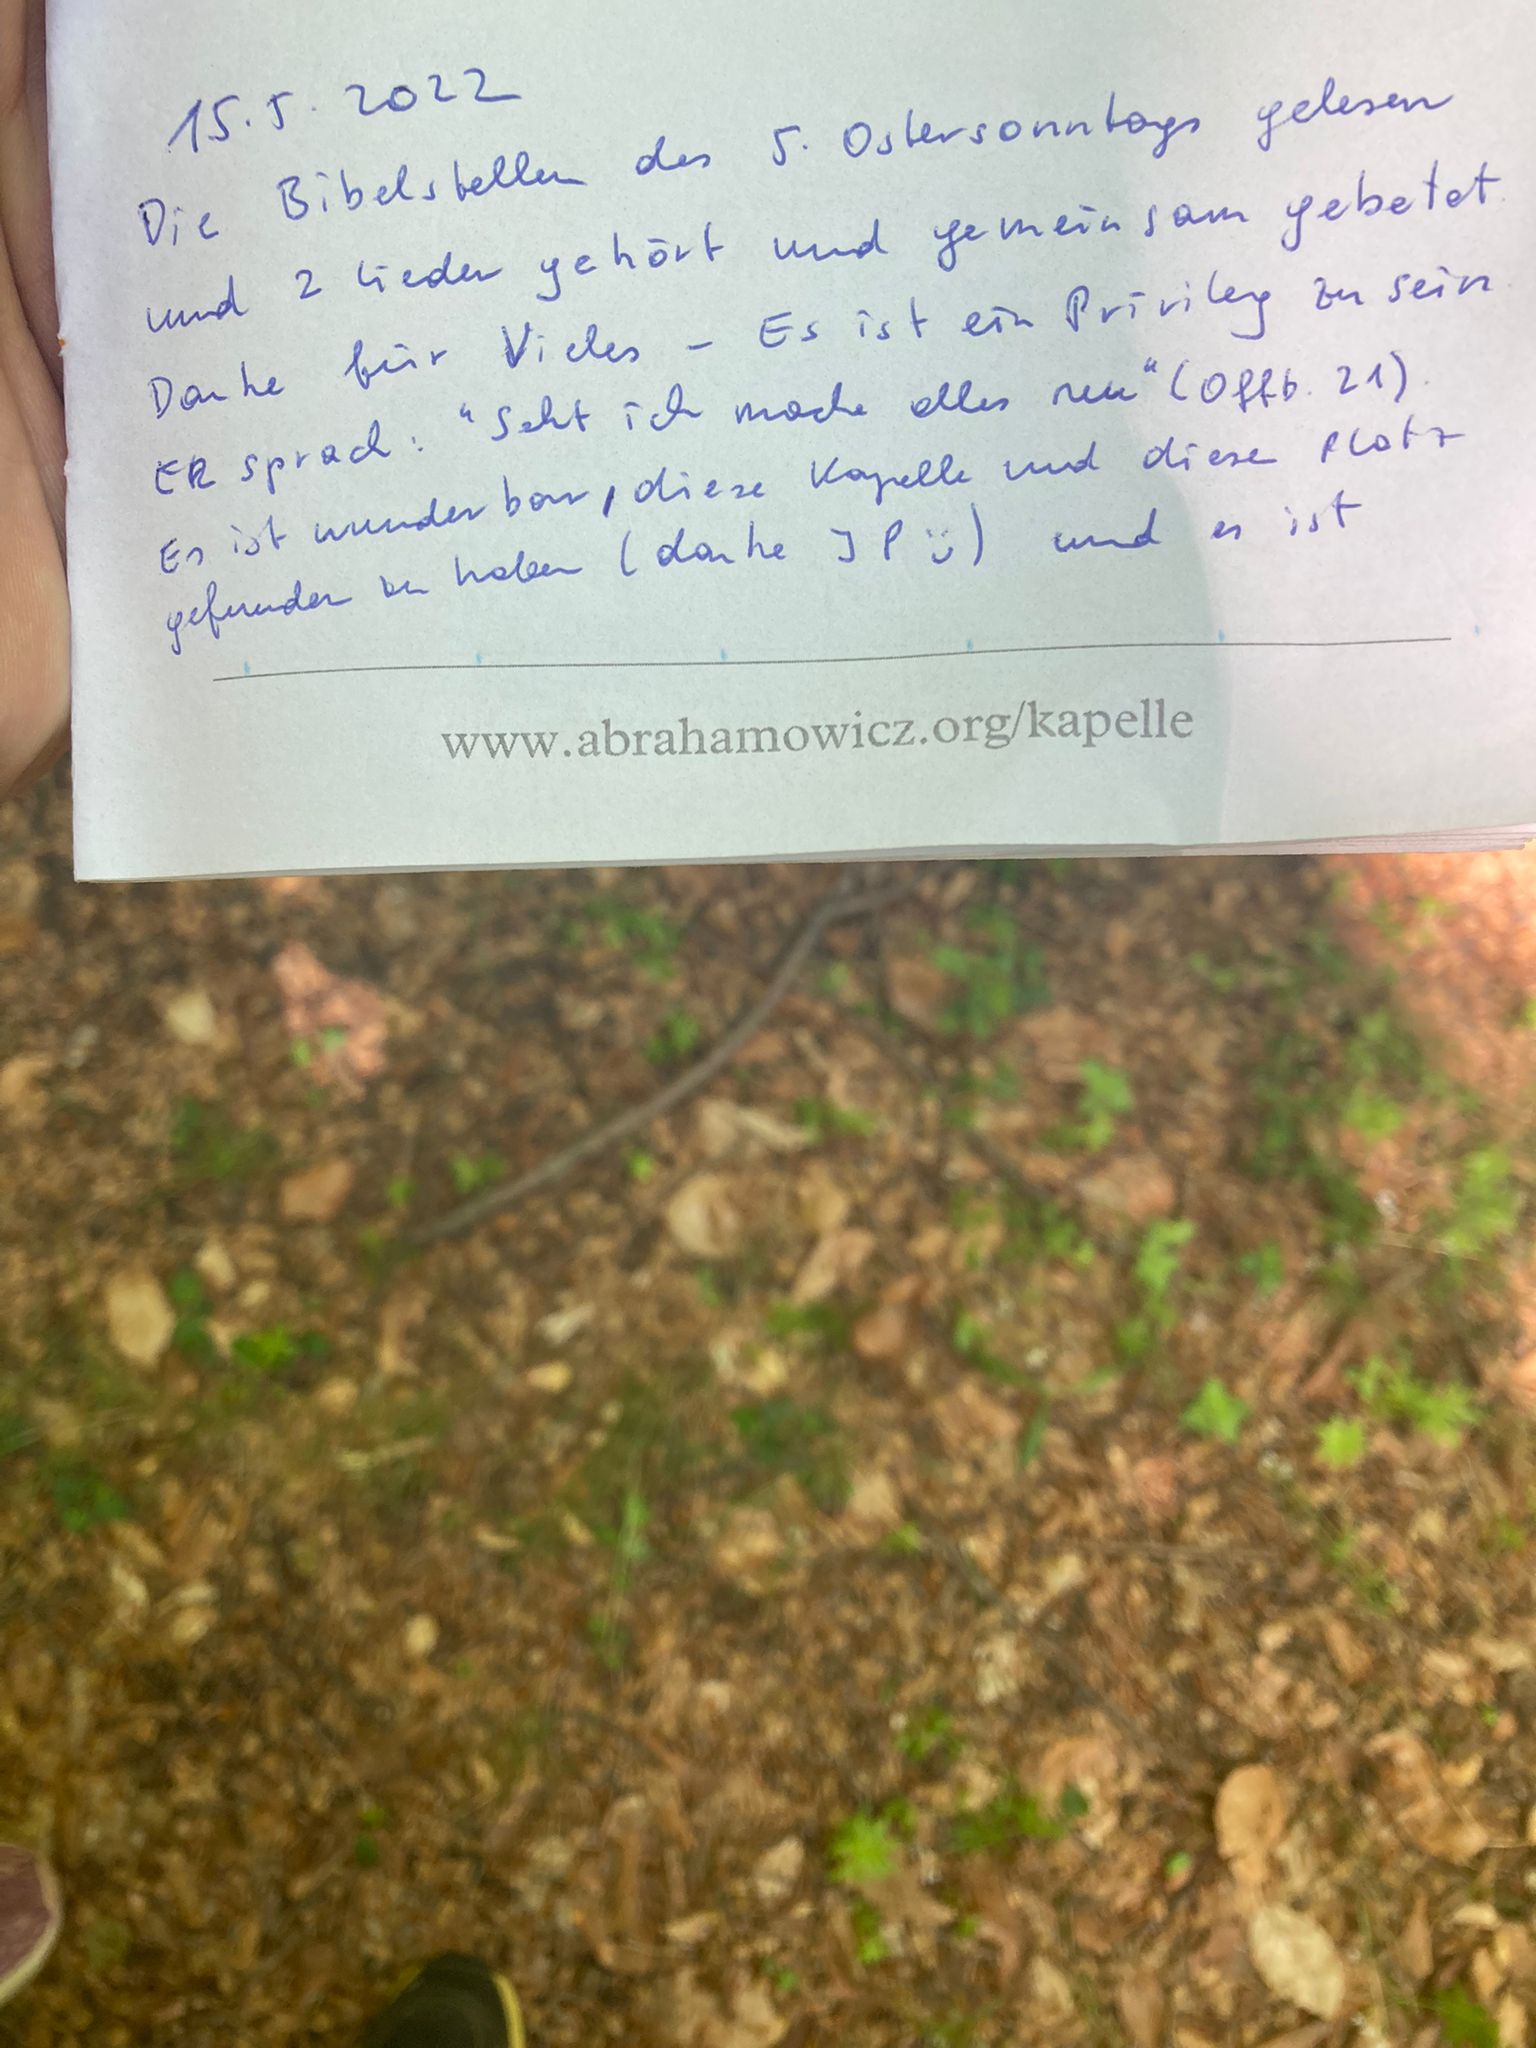 15.5.2022
Die Bibelstellen des 5. Ostersonntags gelesen
und 2 Lieder gehört und gemeinsam gebetet.
Danke für Vieles – Es ist ein Privileg zu sein.
ER sprach: "Seht ich mache alles neu" (Offb. 21).
Es ist wunderbar, diese Kapelle und diesen Platz
gefunden zu haben (danke JP ü) und es ist
www.abrahamowicz.org/kapelle